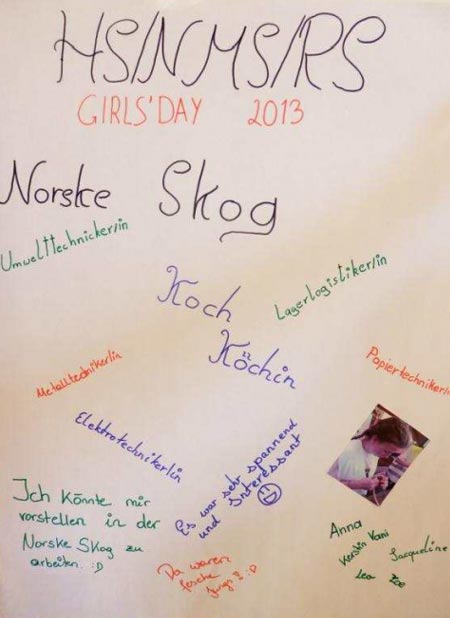 HS/NMS/RS
GIRLS'DAY 2013
Norske Skog
Umwelttechnicker/in
Lagerlogistiker/in
Koch
Köchin
Papiertechniker/in
Metalltechniker/in
Elektrotechniker/in
Es war sehr spannend
und Interessant
Ich könnte mir
vorstellen in der
Norske Skog zu
arbeiten. :D
Da waren
fesche
Jungs :P
Anna
Kerstin Vani
Jacqueline
Lea Zoe